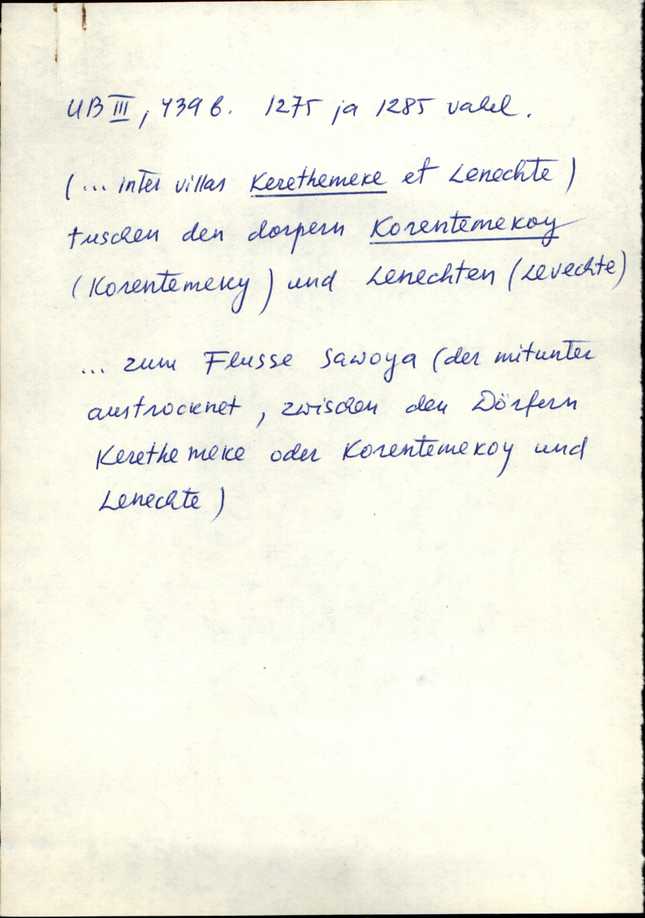 UB III, 439 b. 1275 ja 1285 vahel.
(... inter villas Kerethemeke et Lenechte)
tuschen den dorpern Korentemekoy
(Korentemeky) und Lenechten (Levechte)
... zum Flusse Sawoya (der mitunter
austrocknet, zwischen den Dörfern
Kerethemeke oder Korentemekoy und
Lenechte)